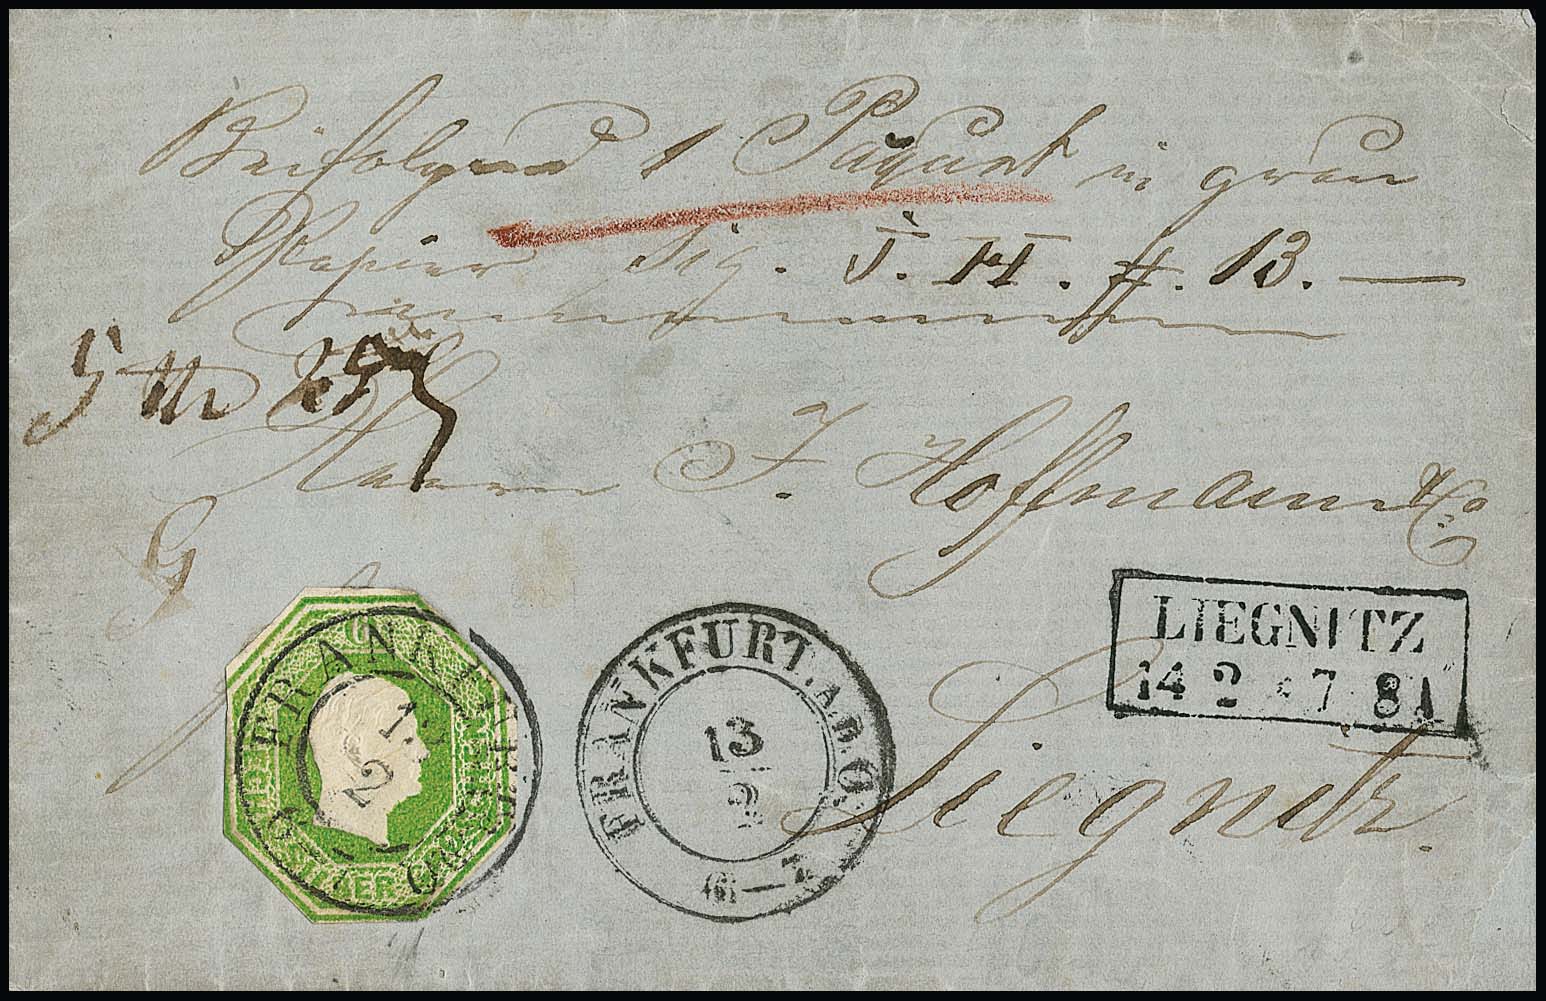 Beifolgend 1 Paquet in grau
Papier Sig. J. H. ff. 13. —
5 25
Herrn J. Hoffmann & Co
G
LIEGNITZ
14 2 * 7 8
FRANKFURT. A.B.O.
13
2
6—7
Liegnitz.
SILBER GROSCHEN
FRANKFURT
13
2